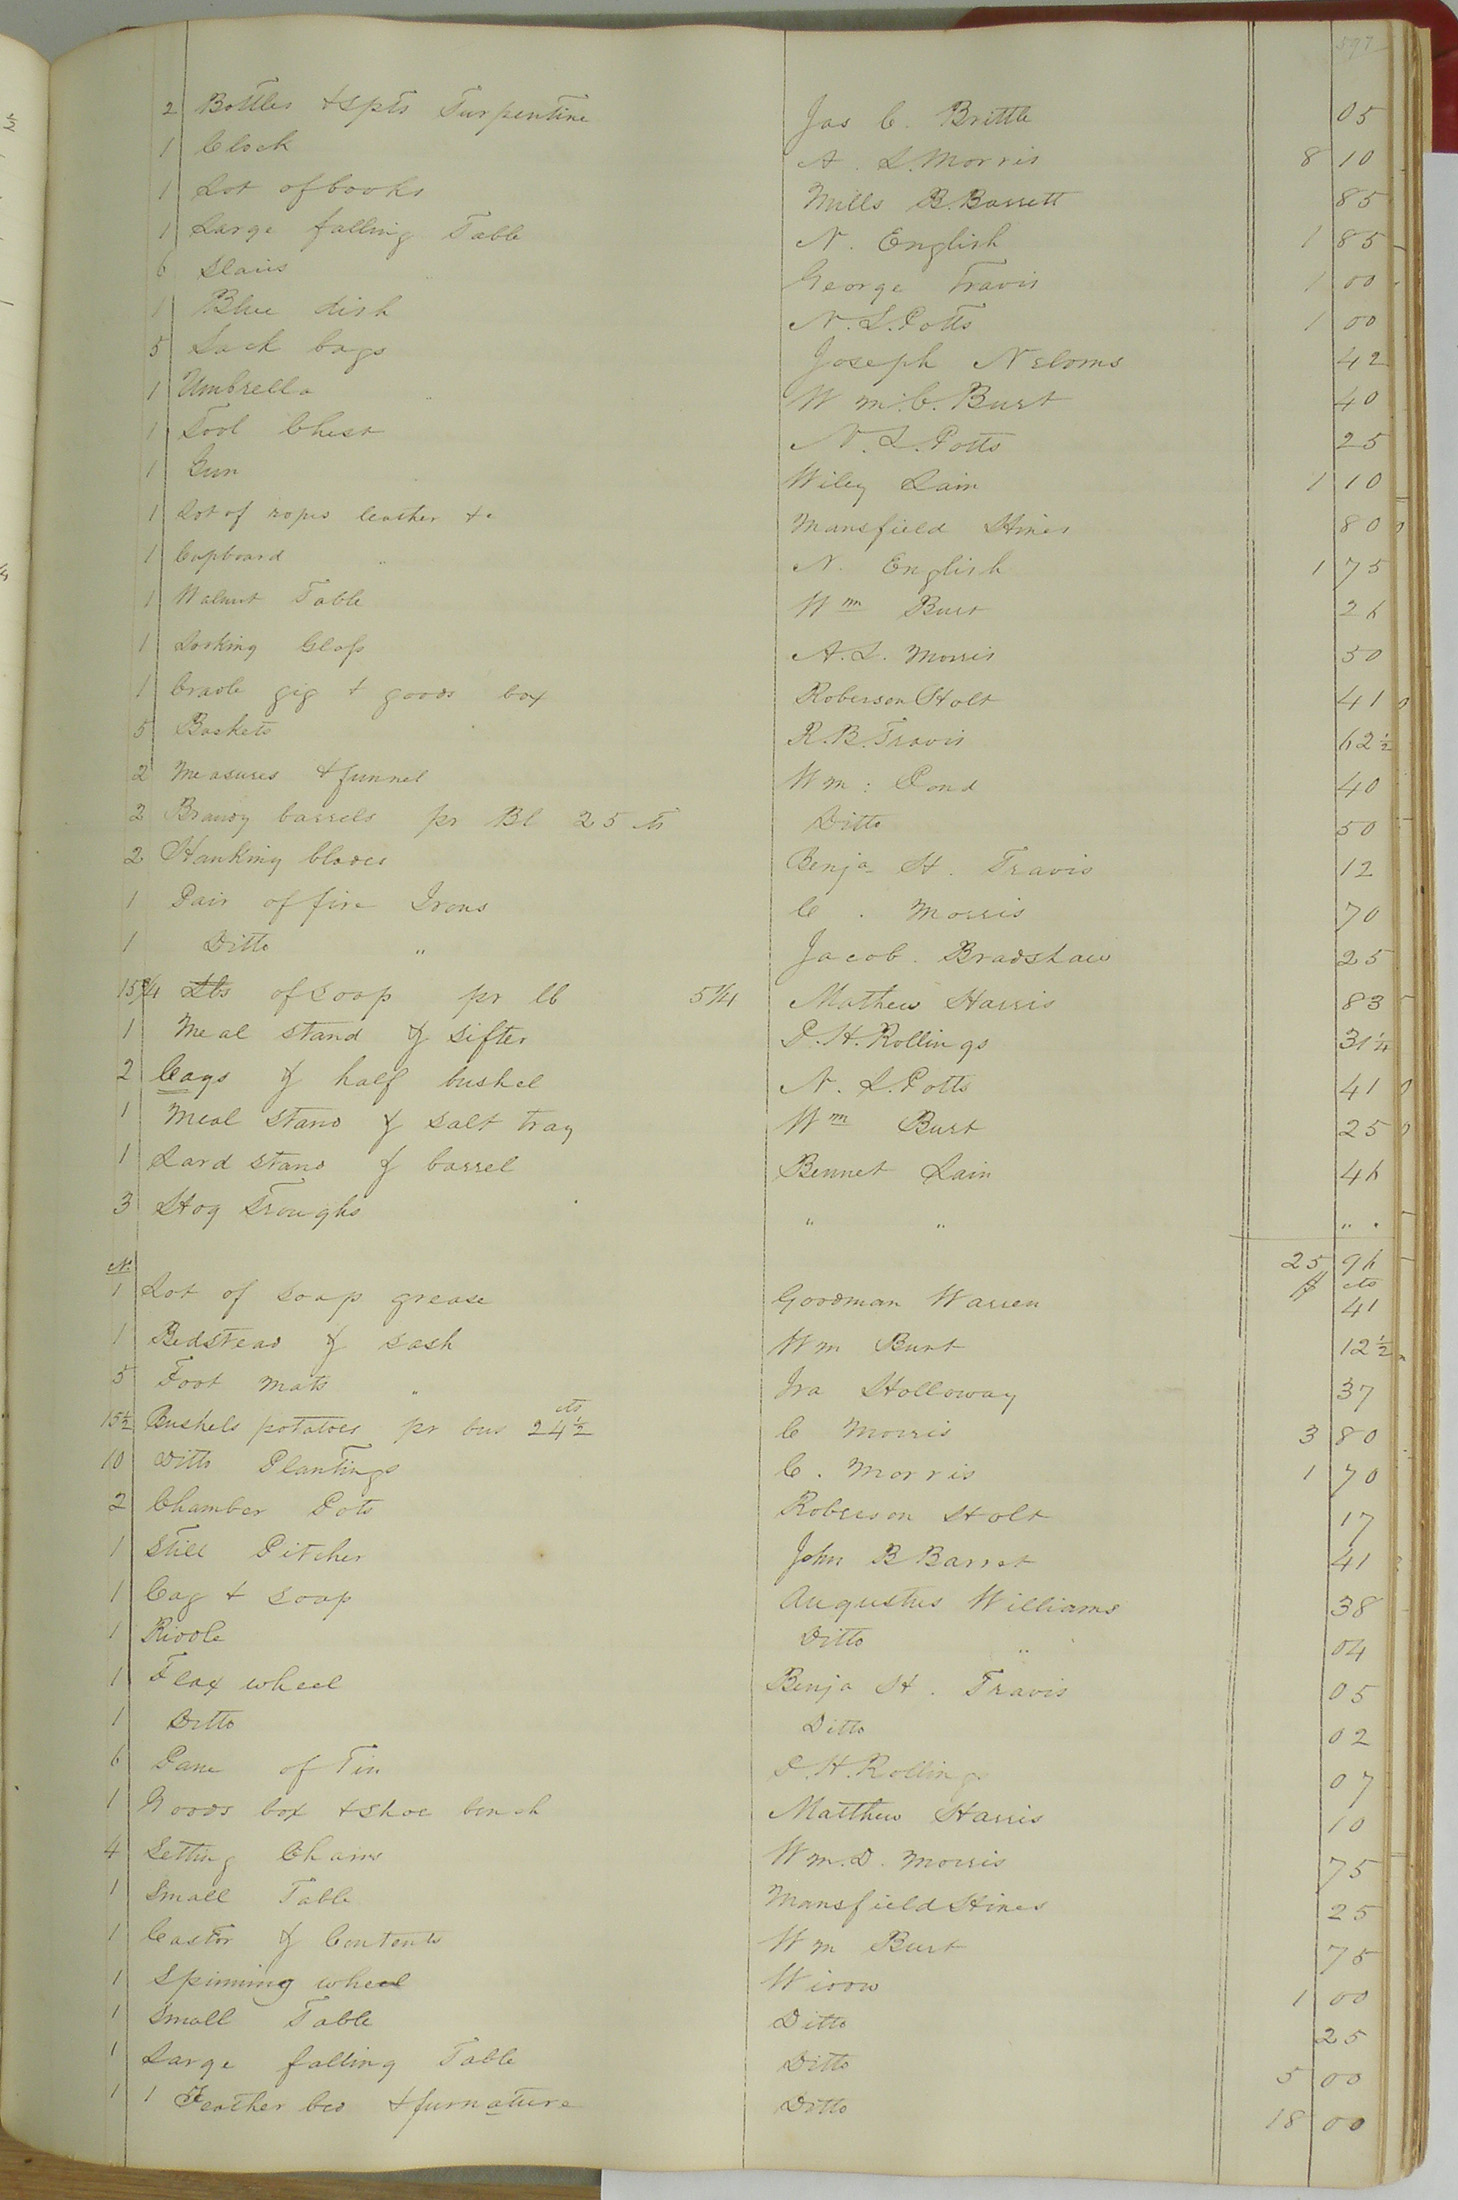 597
2 Bottles & Spts Turpentine Jas C. Brittle 05
1 Clock A. L. Morris 8 10
1 Lot of books Mills B. Barrett 85
1 Large falling Table N. English 1 85
6 Slaies George Travis 1 00
1 Blue dish N. L. Potts 1 00
5 Sack bags Joseph Neloms 42
1 Umbrella Wm. C. Burt 40
1 Tool Chest N. L. Potts 25
1 Gun Wiley Lain 1 10
1 Lot of ropes leather &c Mansfield Hines 80
1 Cupboard N. English 1 75
1 Walnut Table Wm Burt 26
1 Looking Glass A. L. Morris 50
1 Cradle gig & goods box Roberson Holt 41
5 Baskets R. B. Travis 62 ½
2 Measures & funnel Wm: Pond 40
2 Brandy barrels pr Bl 25 cts Ditto 50
2 Hanking blades Benja H. Travis 12
1 Pair of fire Irons C. Morris 70
1 Ditto " Jacob. Bradshaw 25
15¾ Lbs of Soap pr lb 5¼ Mathew Harris 83
1 Meal stand & sifter P. H. Rollings 31 ¼
2 Cags & half bushel N. L. Potts 41
1 Meal stand & salt tray Wm Burt 25
1 Lard stand & barrel Bennet Lain 46
3 Hog Troughs " " "
25 96
N. $ cts
1 Lot of soap grease Goodman Warren 41
1 Bedstead & sash Wm Burt 12 ½
5 Foot mats " Ira Holloway 37
15½ Bushels potatoes pr bus 24½ cts C Morris 3 80
10 Ditto Plantings C. Morris 1 70
2 Chamber Pots Roberson Holt 17
1 Still Pitcher John B Barret 41
1 Cag & soap Augustus Williams 38
1 Riddle Ditto " 04
1 Flax wheel Benja H. Travis 05
1 Ditto Ditto 02
6 Pane of Tin P. H. Rollings 07
1 Goods box & shoe bench Matthew Harris 10
4 Setting Chairs Wm. D. Morris 75
1 Small Table Mansfield Hines 25
1 Castor & Contents Wm Burt 75
1 Spinning wheel Widow 1 00
1 Small Table Ditto 25
1 Large falling Table Ditto 5 00
1 1 Feather bed & furnature Ditto 18 00